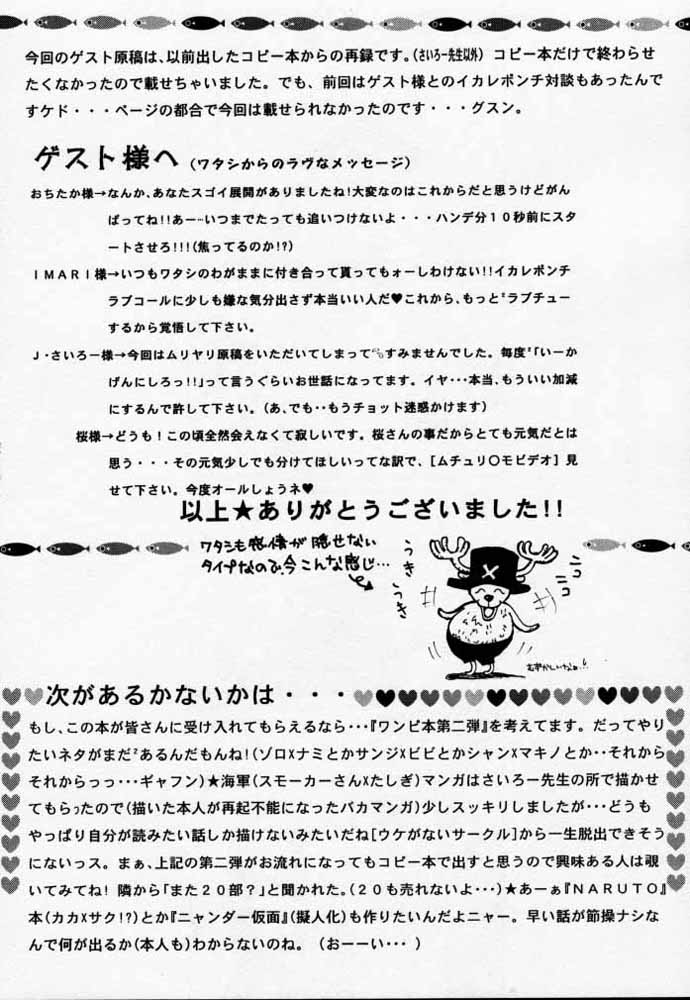 今回のゲスト原稿は、以前出したコピー本からの再録です。(さいろー先生以外) コピー本だけで終わらせ
たくなかったので載せちゃいました。でも、前回はゲスト様とのイカレポンチ対談もあったんで
すケド・・・ページの都合で今回は載せられなかったのです・・・グスン。
ゲスト様へ (ワタシからのラヴなメッセージ)
おちたか様→なんか、あなたスゴイ展開がありましたね!大変なのはこれからだと思うけどがん
ばってね!!あー…いつまでたっても追いつけないよ・・・ハンデ分10秒前にスタ
ートさせろ!!!(焦ってるのか!?)
IMARI様→いつもワタシのわがままに付き合って貰ってもォーしわけない!!イカレポンチ
ラブコールに少しも嫌な気分出さず本当いい人だ♥これから、もっと²ラブチュー
するから覚悟して下さい。
J・さいろー様→今回はムリヤリ原稿をいただいてしまってすみませんでした。毎度²「いーか
げんにしろっ!!」って言うぐらいお世話になってます。イヤ・・・本当、もういい加減
にするんで許して下さい。(あ、でも・・もうチョット迷惑かけます)
桜様→どうも!この頃全然会えなくて寂しいです。桜さんの事だからとても元気だとは
思う・・・その元気少しでも分けてほしいってな訳で、[ムチュリ○モビデオ]見
せて下さい。今度オールしょうネ♥
以上★ありがとうございました!!
ワタシも感情が隠せない
タイプなので今こんな感じ…
うき
うき
ニコ
ニコ
むずかしいなぁ…!
次があるかないかは・・・
もし、この本が皆さんに受け入れてもらえるなら・・・『ワンピ本第二弾』を考えてます。だってやり
たいネタがまだ²あるんだもんね!(ゾロxナミとかサンジxビビとかシャンxマキノとか・・それから
それからっっ・・・ギャフン)★海軍(スモーカーさんxたしぎ)マンガはさいろー先生の所で描かせ
てもらったので(描いた本人が再起不能になったバカマンガ)少しスッキリしましたが・・・どうも
やっぱり自分が読みたい話しか描けないみたいだね[ウケがないサークル]から一生脱出できそう
にないっス。まぁ、上記の第二弾がお流れになってもコピー本で出すと思うので興味ある人は覗
いてみてね!隣から「また20部?」と聞かれた。(20も売れないよ・・・)★あーぁ『NARUTO』
本(カカxサク!?)とか『ニャンダー仮面』(擬人化)も作りたいんだよニャー。早い話が節操ナシな
んで何が出るか(本人も)わからないのね。(おーーい・・・)